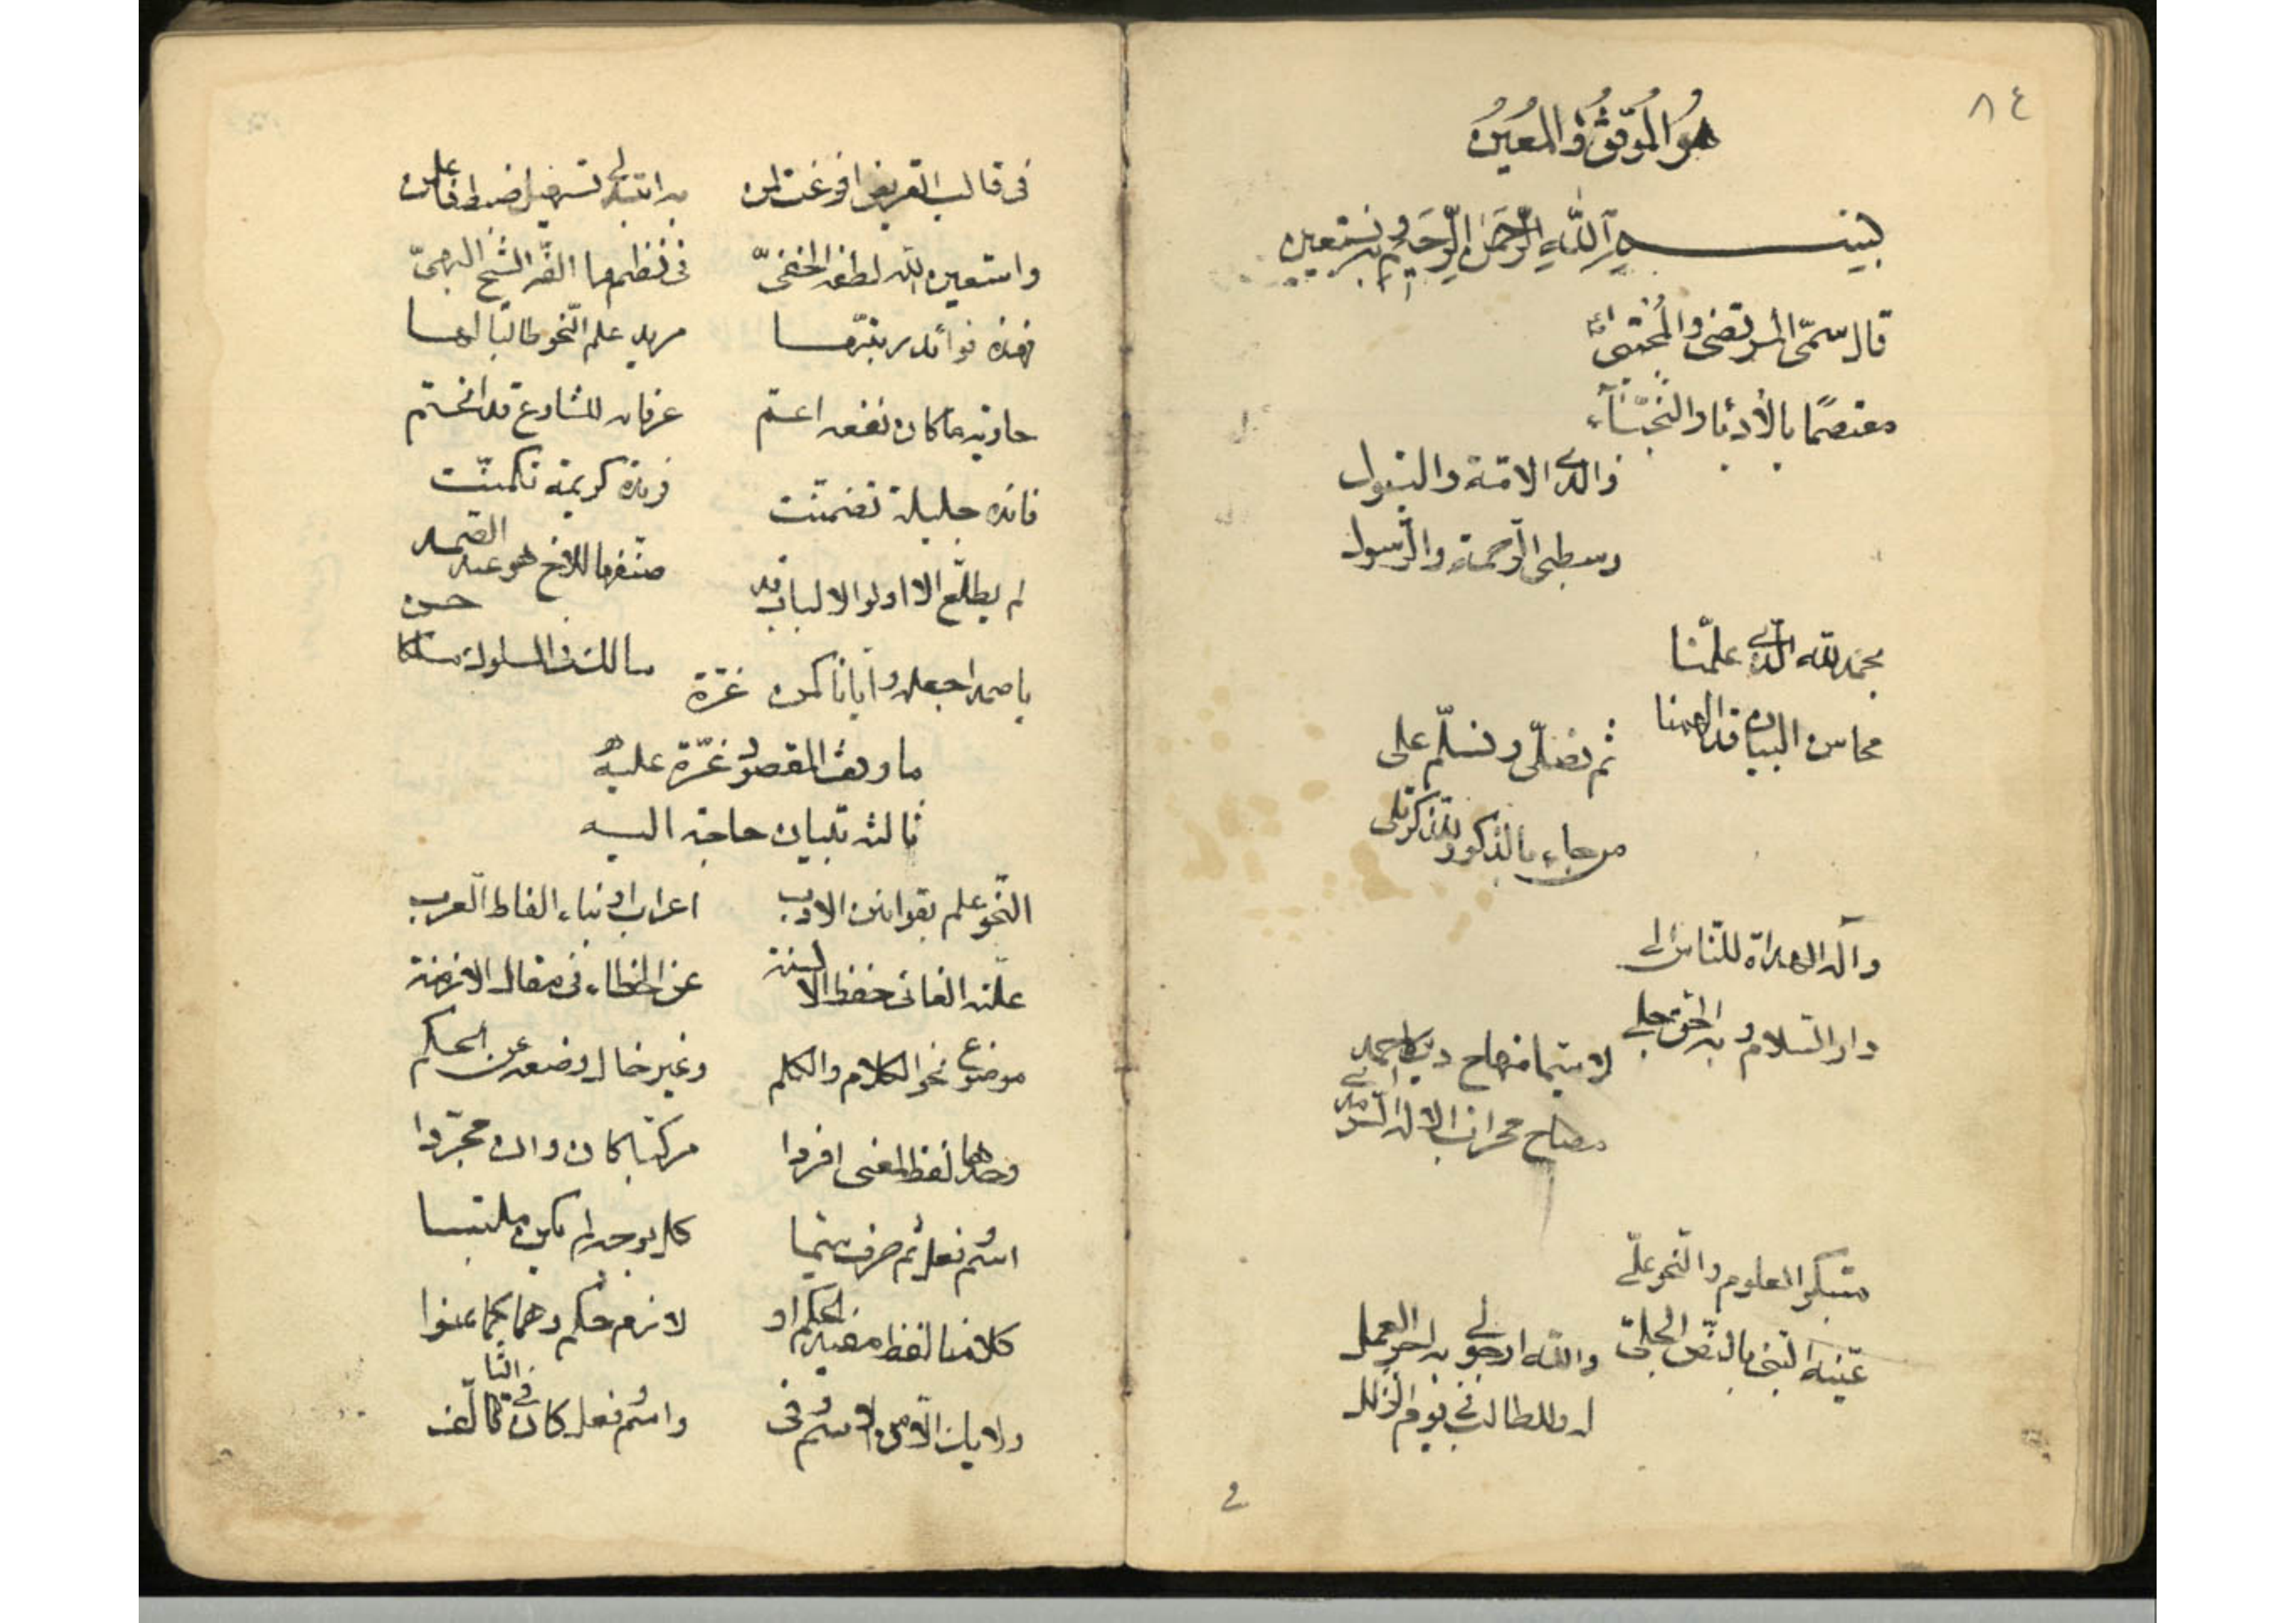 ٨٤
هو الموفق والمعين
بسم الله الرحمن الرحيم وبه نستعين
قال سمي المرتضى والمجتبى
معتصمًا بالأدباء والنجباء
والدي الامة والبتول
وسطي الرحمة والرسول
بحمد الله الذي علمنا
محاسن البيان قد الهمنا
ثم نصلّي ونسلّم على
من جاء بالذكر
وآله الهداة للناس الى
دار السلام وبه الحق جلي
لا سيما منهاج دين احمد
مصباح محراب الاله السرمدي
مبتكر العلوم والنحو علي
عينه النبي بالنص الجلي
والله ارجو لي به اجر العمل
او للطالب في يوم الزلل
في
في قالب القريض افرغت لمن به ابتدى تسهيل ضبط
واستعين الله لطفه الخفي في نظمها الشيخ البهي
فهذه فوائد مريد علم النحو طالبًا لها
حاوية ما كان نفعه اعم عرفانه للشارع قد انحتم
فائدة جليلة تضمنت فريدة كريمة تكمنت
لم يطلع الا اولو الالباب قد صنفها للاخ هو عبد الصمد
يا صمد اجعله وايانا كمن غرة سالك في السلوك مسلكا حسن
ما وقف المقصود غرة عليه
ثالثه تبيان حاجة اليه
النحو علم بقوانين الادب اعراب او بناء الفاظ العرب
علته الغائي حفظ الالسنة عن الخطاء في مقال الازمنة
موضوع نحو الكلام والكلم وغير خال وضعه عن الحكم
وحدها لفظ لمعنى افردا مركبًا كان وان مجردا
اسم وفعل ثم حرف سميا كل بوجه لم يكن ملتبسا
كلامنا لفظ مفيد الحكم او لازم حكم وهما كما عنوا
ولا يأت الا من الاسم وفي واسم وفعل كان في الثا